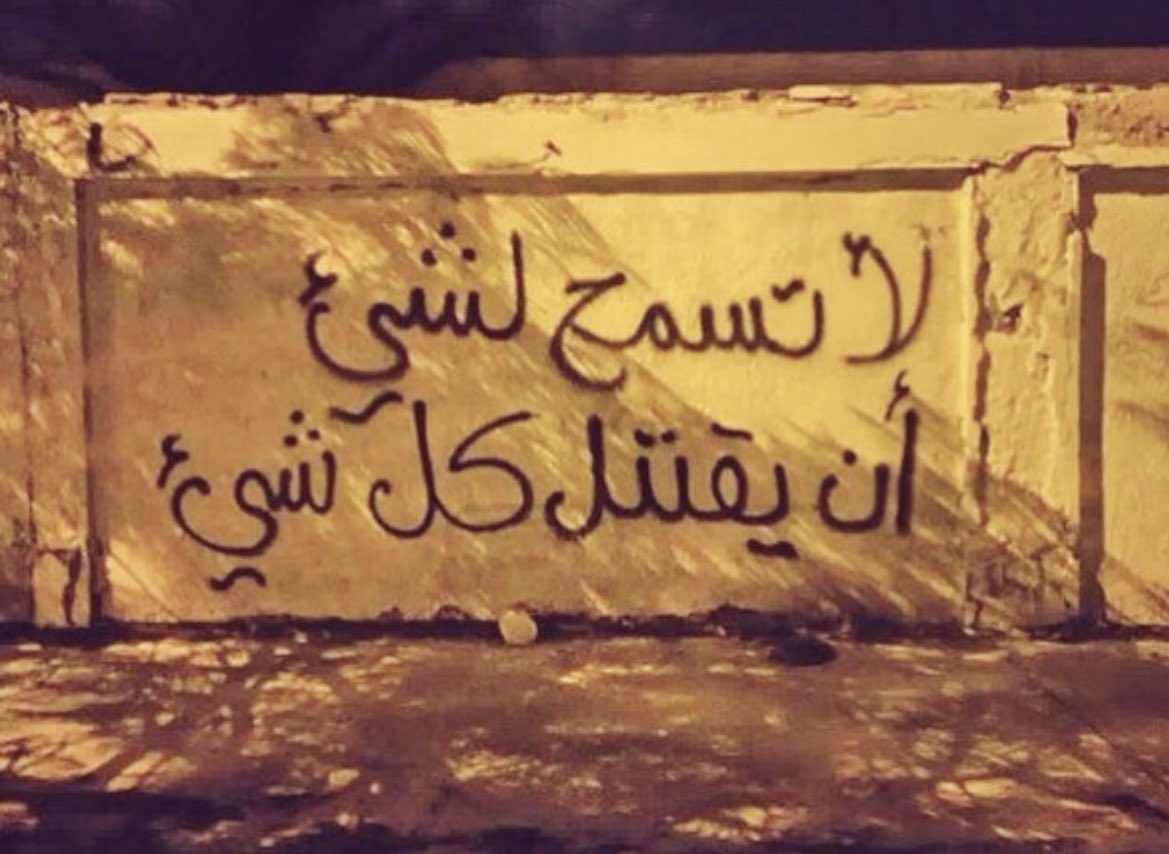 لا تسمح لشئ
أن يقتل كل شئ